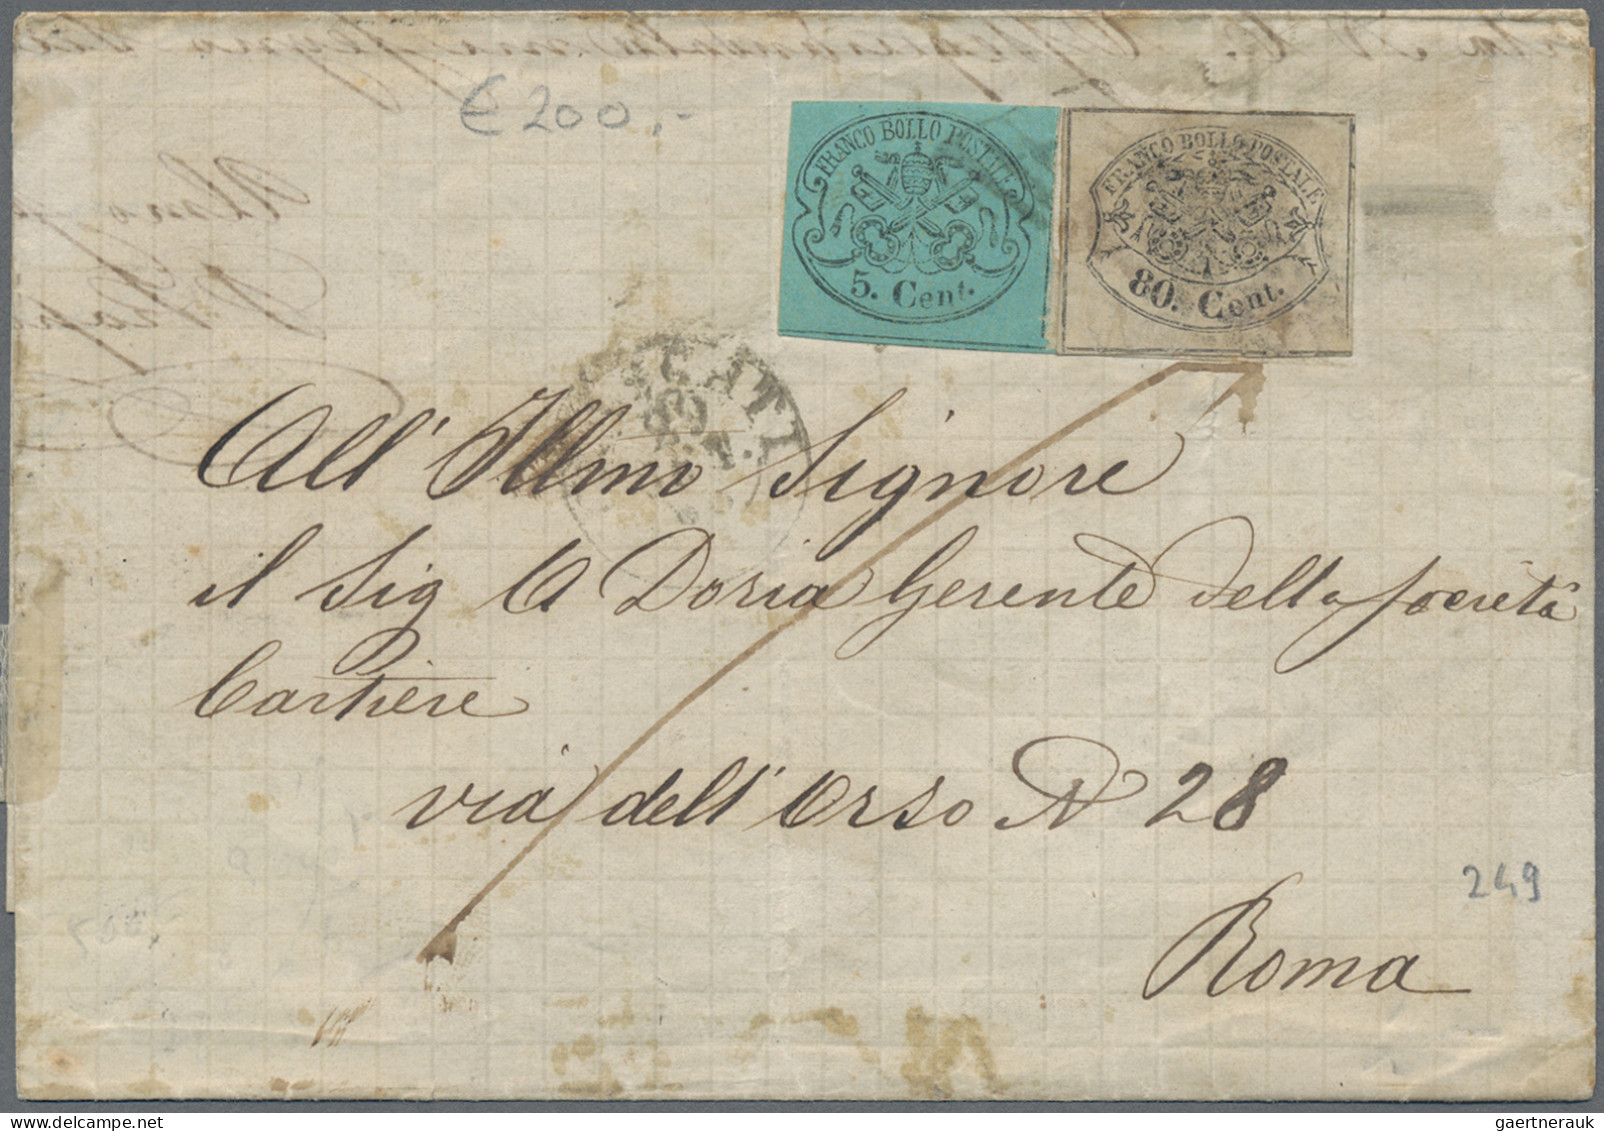 € 200,-
FRANCO BOLLO POSTALE
5. Cent.
FRANCO BOLLO POSTALE
80. Cent.
All' Illmo Signore
il Sig A Doria Gerente della Società
Cartiere
via dell' Orso N 28
249
Roma
gaertnerauk